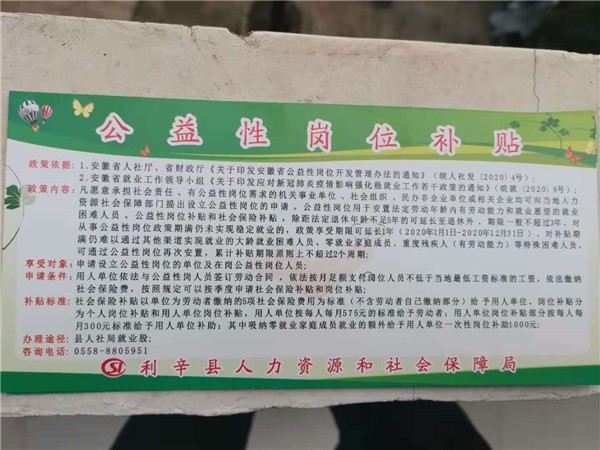 公益性岗位补贴
政策依据：1.安徽省人社厅、省财政厅《关于印发安徽省公益性岗位开发管理办法的通知》（皖人社发〔2020〕4号）；
2.安徽省就业工作领导小组《关于印发应对新冠肺炎疫情影响强化稳就业工作若干政策的通知》（皖就〔2020〕6号）；
政策内容：凡愿意承担社会责任、有公益性岗位需求的机关事业单位、社会组织、民办非企业单位或相关企业均可向当地人力
资源社会保障部门提出设立公益性岗位的申请。公益性岗位用于安置法定劳动年龄内有劳动能力和就业愿望的就业
困难人员。公益性岗位补贴和社会保险补贴，除距法定退休年龄不足5年的可延长至退休外，期限一般不超过3年。对
从事公益性岗位政策期满仍未实现稳定就业的，政策享受期限可延长1年（2020年1月1日-2020年12月31日）。对补贴期
满仍难以通过其他渠道实现就业的大龄就业困难人员、零就业家庭成员、重度残疾人（有劳动能力）等特殊困难人员，
可通过公益性岗位再次安置，累计补贴期限原则上不超过2个周期；
享受对象：申请设立公益性岗位的单位及在岗公益性岗位人员；
申请条件：用人单位依法与公益性岗位人员签订劳动合同，依法按月足额支付岗位人员不低于当地最低工资标准的工资，依法缴纳
社会保险费，按照规定可以按季度申请社会保险补贴和岗位补贴；
补贴标准：社会保险补贴以单位为劳动者缴纳的5项社会保险费用为标准（不含劳动者自己缴纳部分）给予用人单位，岗位补贴分
为个人岗位补贴和用人单位岗位补贴，用人单位按每人每月575元的标准给予劳动者；用人单位岗位补贴部分按每人每
月300元标准给予用人单位补助；其中吸纳零就业家庭成员就业的额外给予用人单位一次性岗位补助1000元；
办理途径：县人社局就业股；
咨询电话：0558-8805951
利辛县人力资源和社会保障局